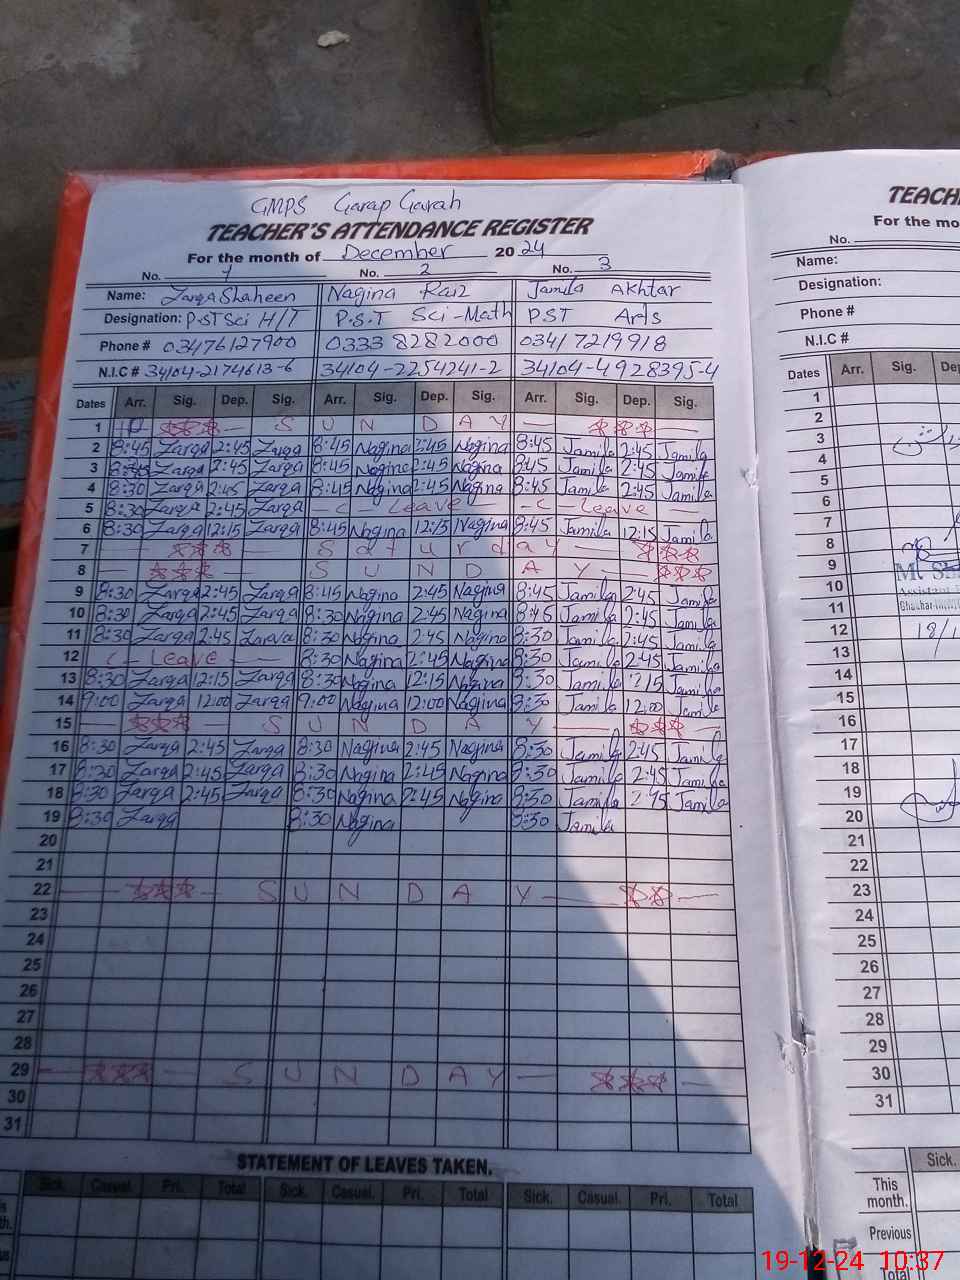 GMPS Garap Garah
TEACHER'S ATTENDANCE REGISTER
For the month of December 2024
No. 1 No. 2 No. 3
Name: Zarqa Shaheen Nagina Raiz Jamila Akhtar
Designation: P.ST Sci H/T P.S.T Sci-Math PST Arts
Phone # 03476127900 0333 8282000 0341 7219918
N.I.C # 34104-2174613-6 34104-2254241-2 34104-4928395-4
Dates Arr. Sig. Dep. Sig. Arr. Sig. Dep. Sig. Arr. Sig. Dep. Sig.
1 SUNDAY
2 8:45 Zarqa 2:45 Zarqa 8:45 Nagina 2:45 Nagina 8:45 Jamila 2:45 Jamila
3 8:45 Zarqa 2:45 Zarqa 8:45 Nagina 2:45 Nagina 8:45 Jamila 2:45 Jamila
4 8:30 Zarqa 2:45 Zarqa 8:45 Nagina 2:45 Nagina 8:45 Jamila 2:45 Jamila
5 8:30 Zarqa 2:45 Zarqa - C - Leave - C - Leave -
6 8:30 Zarqa 12:15 Zarqa 8:45 Nagina 12:15 Nagina 8:45 Jamila 12:15 Jamila
7 Saturday
8 SUNDAY
9 8:30 Zarqa 2:45 Zarqa 8:45 Nagina 2:45 Nagina 8:45 Jamila 2:45 Jamila
10 8:30 Zarqa 2:45 Zarqa 8:30 Nagina 2:45 Nagina 8:45 Jamila 2:45 Jamila
11 8:30 Zarqa 2:45 Zarqa 8:30 Nagina 2:45 Nagina 8:30 Jamila 2:45 Jamila
12 C - Leave 8:30 Nagina 2:45 Nagina 8:30 Jamila 2:45 Jamila
13 8:30 Zarqa 12:15 Zarqa 8:30 Nagina 12:15 Nagina 8:30 Jamila 12:15 Jamila
14 9:00 Zarqa 12:00 Zarqa 9:00 Nagina 12:00 Nagina 8:30 Jamila 12:00 Jamila
15 SUNDAY
16 8:30 Zarqa 2:45 Zarqa 8:30 Nagina 2:45 Nagina 8:30 Jamila 2:45 Jamila
17 8:30 Zarqa 2:45 Zarqa 8:30 Nagina 2:45 Nagina 8:30 Jamila 2:45 Jamila
18 8:30 Zarqa 2:45 Zarqa 8:30 Nagina 2:45 Nagina 8:30 Jamila 2:45 Jamila
19 8:30 Zarqa 8:30 Nagina 8:30 Jamila
20
21
22 SUNDAY
23
24
25
26
27
28
29 SUNDAY
30
31
STATEMENT OF LEAVES TAKEN.
Sick. Casual. Pri. Total Sick. Casual. Pri. Total Sick. Casual. Pri. Total
For the mo
No.
Name:
Designation:
Phone #
N.I.C #
Dates Arr. Sig.
1
2
3
4
5
6
7
8
9
10
11
12 18/1
13
14
15
16
17
18
19
20
21
22
23
24
25
26
27
28
29
30
31
Sick.
This
month.
Previous
Total
19-12-24 10:37